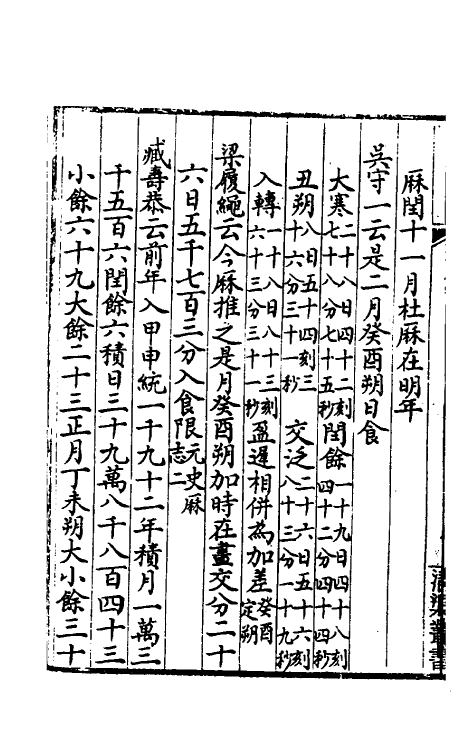 厤閏十一月杜厤在明年
吳守一云是二月癸酉朔日食
大寒二十八日四十二刻七十八分七十五秒閏餘一十九日四十八刻四十二分四十四秒
丑朔八日五十四刻三十六分三十一秒交泛二十六日五十六刻八十三分一十九秒
入轉一十八日八十三刻六十三分三十一秒盈遲相併為加差癸酉定朔
梁履繩云今厤推之是月癸酉朔加時在晝交分二十
六日五千七百三分入食限元史厤志二
臧壽恭云前年入甲申統一千九十二年積月一萬三
千五百六閏餘六積日三十九萬八千八百四十三
小餘六十九大餘二十三正月丁未朔大小餘三十
叢書